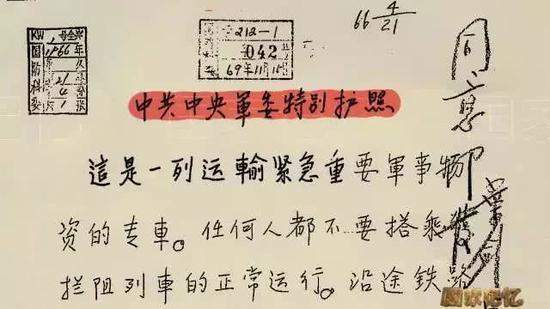 66 4/21
212-1
042
69年11月
1966年
中共中央軍委特别护照
這是一列运輸紧急重要軍事物
资的专車。任何人都不要搭乘
拦阻列車的正常运行。沿途铁路
同意
国家记忆